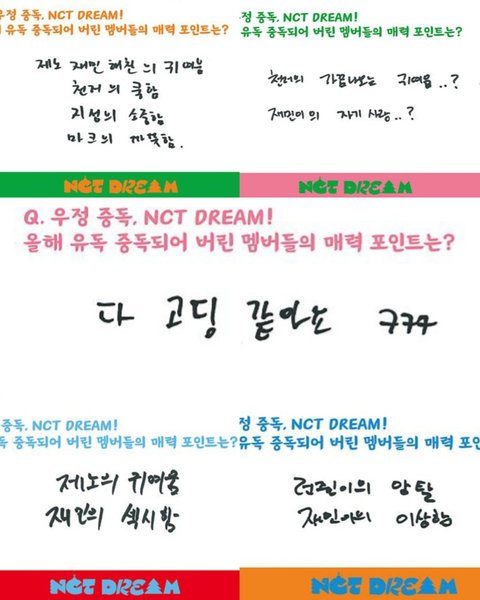 우정 중독, NCT DREAM!
유독 중독되어 버린 멤버들의 매력 포인트는?
제노 재민 해찬의 귀여움
천러의 쿨함
지성의 소중함
마크의 깨끗함.
NCT DREAM
정 중독, NCT DREAM!
유독 중독되어 버린 멤버들의 매력 포인트는?
천러의 가끔나오는 귀여움..?
재민이의 자기 사랑..?
NCT DREAM
Q. 우정 중독, NCT DREAM!
올해 유독 중독되어 버린 멤버들의 매력 포인트는?
다 고딩 같아요 ㅋㅋㅋ
중독, NCT DREAM!
독 중독되어 버린 멤버들의 매력 포인트는?
제노의 귀여움
재민의 섹시함
NCT DREAM
정 중독, NCT DREAM!
유독 중독되어 버린 멤버들의 매력 포인
런쥔이의 앙탈
재민이의 이상함
NCT DREAM